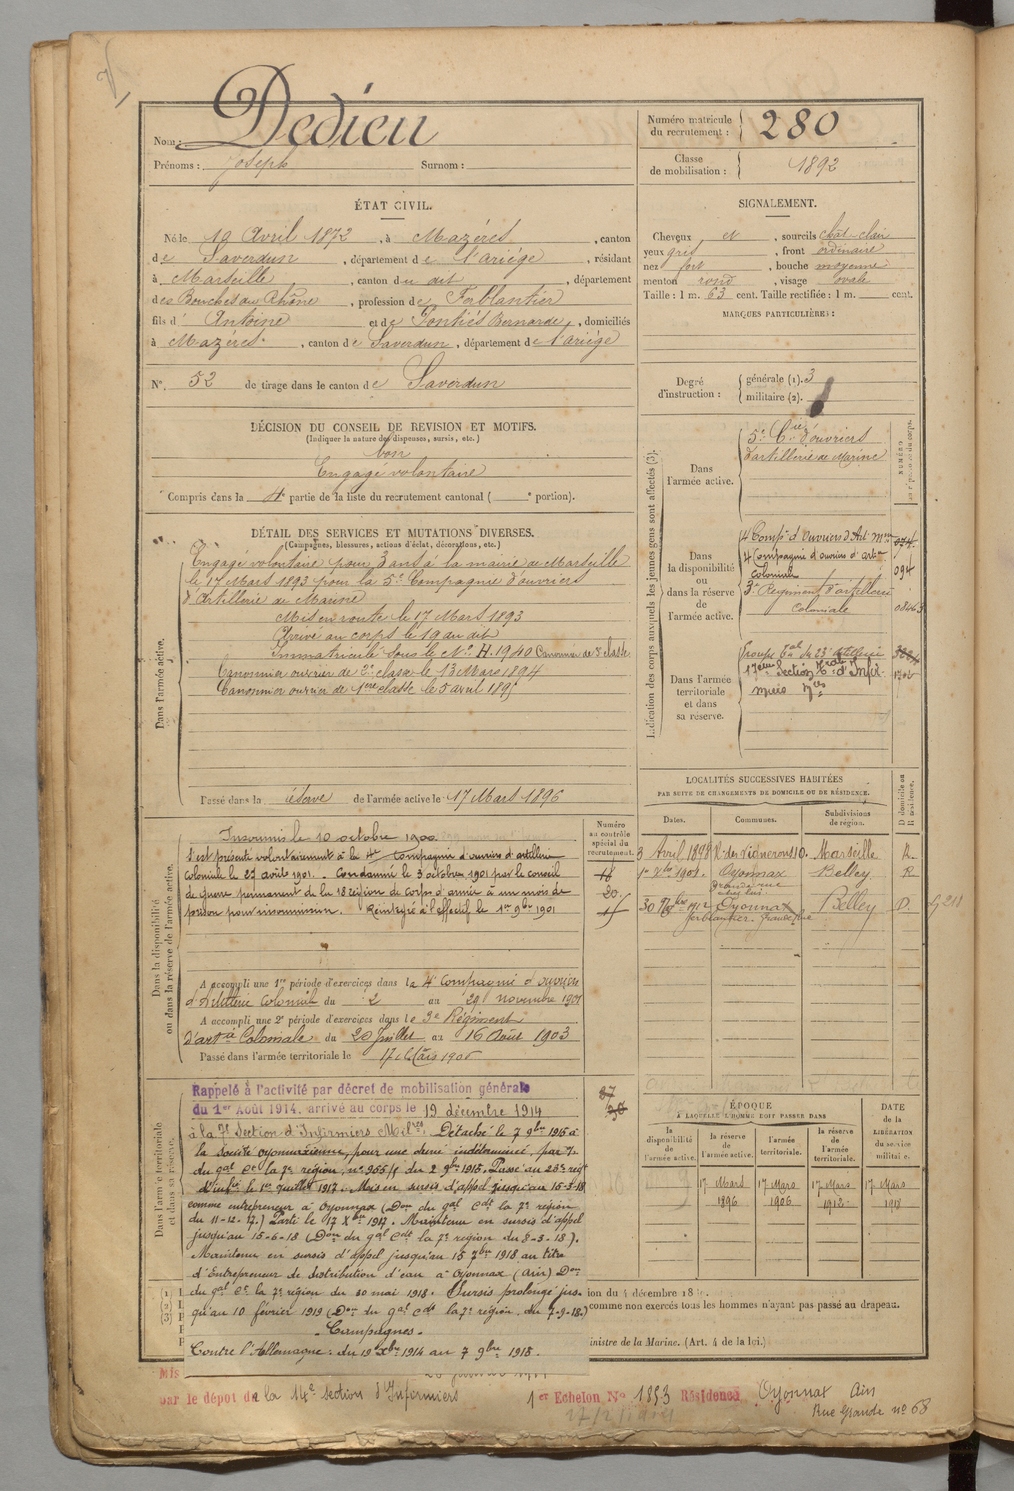 Nom : Dedieu
Prénoms : Joseph Surnom :
Numéro matricule
du recrutement : 280
Classe
de mobilisation : 1892
ÉTAT CIVIL.
Né le 19 Avril 1872, à Mazéres, canton
de Saverdun, département de l'ariége, résidant
à Marseille, canton du dit, département
des Bouches du Rhône, profession de Ferblantier
fils d' Antoine et de Pontiés Bernarde, domiciliés
à Mazéres, canton de Saverdun, département de l'ariége
N° 52 de tirage dans le canton de Saverdun
SIGNALEMENT.
Cheveux et, sourcils chât-clair
yeux gris, front ordinaire
nez fort, bouche moyenne
menton rond, visage ovale
Taille : 1 m. 63 cent. Taille rectifiée : 1 m. cent.
MARQUES PARTICULIÈRES :
Degré
d'instruction : générale (1). 3
militaire (2).
DÉCISION DU CONSEIL DE REVISION ET MOTIFS.
(Indiquer la nature des dispenses, sursis, etc.)
bon
Engagé volontaire
Compris dans la 4e partie de la liste du recrutement cantonal ( e portion).
DÉTAIL DES SERVICES ET MUTATIONS DIVERSES.
(Campagnes, blessures, actions d'éclat, décorations, etc.)
Dans l'armée active.
Engagé volontaire pour 3 ans à la mairie de Marseille
le 17 Mars 1893 pour la 5e Compagnie d'ouvriers
d'Artillerie de Marine
Mis en route le 17 Mars 1893
Arrivé au corps le 19 du dit
Immatriculé sous le N° H.1940 Canonnier de 2e classe
Canonnier ouvrier de 2e classe le 13 Mars 1894
Canonnier ouvrier de 1ere classe le 5 avril 1895
Passé dans la réserve de l'armée active le 17 Mars 1896
Indication des corps auxquels les jeunes gens sont affectés (3).
Dans
l'armée active.
5e Cie d'ouvriers
d'artillerie de Marine
Dans
la disponibilité
ou
dans la réserve
de
l'armée active.
4 Compie d'Ouvriers d'Art Mne
4 Compagnie d'ouvriers d'artie 094
Coloniale
3e Regiment d'artillerie
Coloniale
Dans l'armée
territoriale
et dans
sa réserve.
Groupe Tal du 23e Artillerie
17ème Section Tale d'Infir-
miers Mres
LOCALITÉS SUCCESSIVES HABITÉES
PAR SUITE DE CHANGEMENTS DE DOMICILE OU DE RÉSIDENCE.
Dates. Communes. Subdivisions
de région.
3 Avril 1898 R. des Vignerons 10. Marseille R.
1er 7bre 1904. Oyonnax Belley R
Grande rue
30 1912 Oyonnax Belley D. G 211
ferblantier. Grande Rue
Numéro
au contrôle
spécial du
recrutement.
Dans la disponibilité
ou dans la réserve de l'armée active.
Insoumis le 10 octobre 1900.
S'est présenté volontairement à la 4e Compagnie d'ouvriers d'artillerie
Coloniale le 29 août 1901. Condamné le 3 octobre 1901 par le conseil
de Guerre permanent de la 18e région de Corps d'armée à un mois de
prison pour insoumission. Réintégré à l'effectif le 1er 9bre 1901
A accompli une 1re période d'exercices dans la 4e Compagnie d'ouvriers
d'Artillerie Coloniale du 2 au 29 novembre 1901
A accompli une 2e période d'exercices dans le 3e Régiment
d'artie Coloniale du 20 Juillet au 16 Août 1903
Passé dans l'armée territoriale le 17 Mars 1906
Dans l'armée territoriale
et dans sa réserve.
Rappelé à l'activité par décret de mobilisation générale
du 1er Août 1914, arrivé au corps le 19 décembre 1914
à la 7e Section d'Infirmiers Milres. Détaché le 7 9bre 1915 à
la Société oyonnaxienne, pour une durée indéterminée, par
du gal Ct la 7e région, n° 955/S du 2 9bre 1915. Passé au 23e regt
d'infie le 1er Juillet 1917. Mis en sursis d'appel jusqu'au 15-3-18
comme entrepreneur à Oyonnax (Don du gal Cdt la 7e région
du 11-12-17.) Parti le 17 Xbre 1917. Maintenu en sursis d'appel
jusqu'au 15-6-18 (Don du gal Cdt la 7e region du 8-3-18).
Maintenu en sursis d'appel jusqu'au 15 7bre 1918 au titre
d'Entrepreneur de distribution d'eau à Oyonnax (Ain) Don
du gal Ct la 7e région du 30 mai 1918. Sursis prolongé jus-
qu'au 10 février 1919 (Don du gal Cdt la 7e région du 7-9-18.)
- Campagnes -
Contre l'Allemagne : du 19 Xbre 1914 au 7 9bre 1915.
ÉPOQUE
À LAQUELLE L'HOMME DOIT PASSER DANS
la
disponibilité
de
l'armée active. la réserve
de
l'armée active. l'armée
territoriale. la réserve
de
l'armée
territoriale.
DATE
de la
LIBÉRATION
du service
militaire.
17 Mars 17 Mars 17 Mars 17 Mars
1896 1906 1912 1918
ion du 4 décembre 18
comme non exercés tous les hommes n'ayant pas passé au drapeau.
inistre de la Marine. (Art. 4 de la loi.)
Mis
par le dépôt de la 14e section d'Infirmiers 1er Echelon N° 1893 Résidence Oyonnax Ain
Rue Grande n° 68